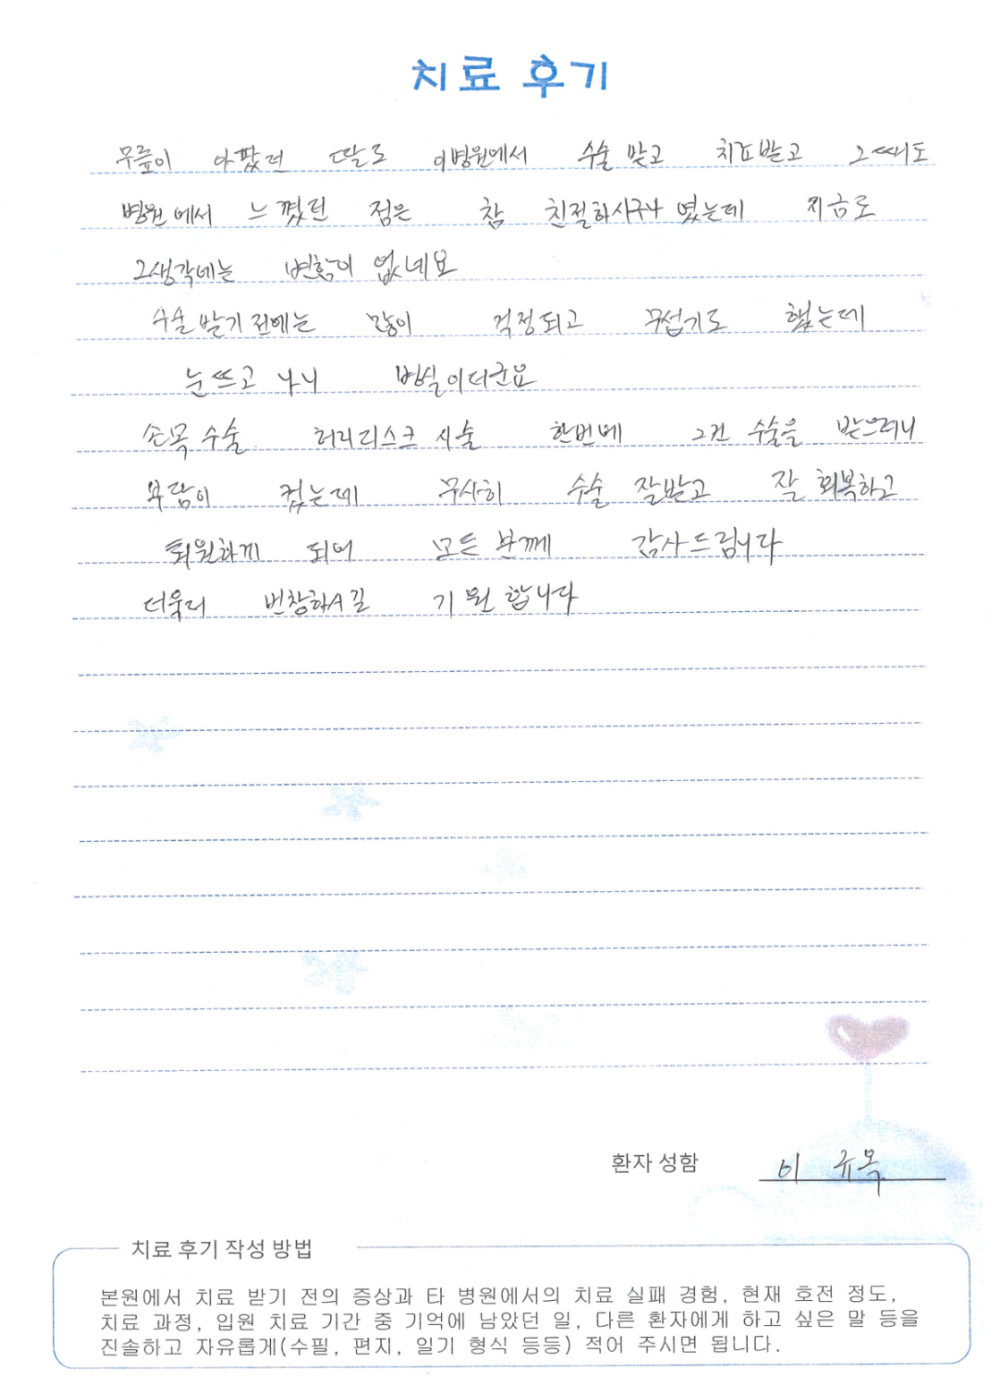 치료 후기
무릎이 아팠던 딸도 이병원에서 수술 받고 치료받고 그때도
병원에서 느꼈던 점은 참 친절하시구나 였는데 지금도
그생각에는 변함이 없네요
수술받기 전에는 많이 걱정되고 무섭기도 했는데
눈뜨고 나니 병실이더군요
손목 수술 허리디스크 시술 한번에 2건 수술을 받으려니
부담이 컸는데 무사히 수술 잘받고 잘 회복하고
퇴원하게 되어 모든 분께 감사드립니다
더욱더 번창하시길 기원합니다
환자 성함 이규옥
치료 후기 작성 방법
본원에서 치료 받기 전의 증상과 타 병원에서의 치료 실패 경험, 현재 호전 정도,
치료 과정, 입원 치료 기간 중 기억에 남았던 일, 다른 환자에게 하고 싶은 말 등을
진솔하고 자유롭게(수필, 편지, 일기 형식 등등) 적어 주시면 됩니다.